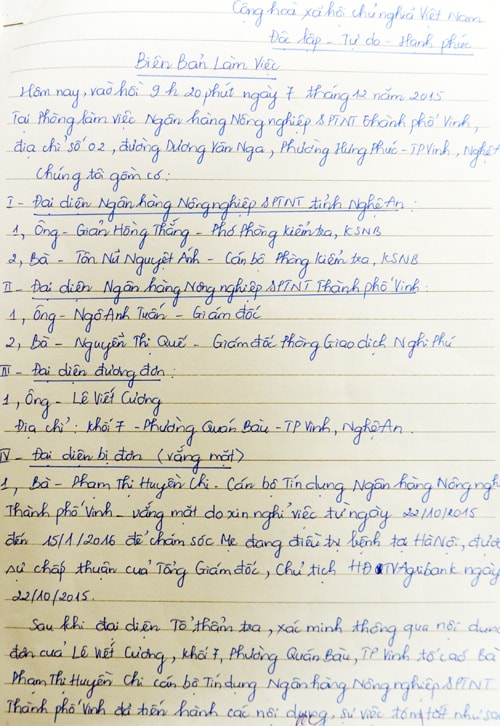 Cộng hoà xã hội chủ nghĩa Việt Nam
Độc lập - Tự do - Hạnh phúc
Biên Bản Làm Việc
Hôm nay, vào hồi 9h 20 phút ngày 7 tháng 12 năm 2015
Tại Phòng làm việc Ngân hàng Nông nghiệp &PTNT thành phố Vinh,
địa chỉ số 02, đường Dương Vân Nga, Phường Hưng Phúc - TP Vinh, Nghệ
Chúng tôi gồm có:
I - Đại diện Ngân hàng Nông nghiệp &PTNT tỉnh Nghệ An:
1, Ông - Giản Hồng Thắng - Phó Phòng kiểm tra, KSNB
2, Bà - Tôn Nữ Nguyệt Ánh - Cán bộ Phòng kiểm tra, KSNB
II - Đại diện Ngân hàng Nông nghiệp &PTNT Thành phố Vinh:
1, Ông - Ngô Anh Tuấn - Giám đốc
2, Bà - Nguyễn Thị Quế - Giám đốc Phòng Giao dịch Nghi Phú
III - Đại diện đương đơn:
1, Ông - Lê Viết Cương
Địa chỉ: Khối 7 - Phường Quán Bàu - TP Vinh, Nghệ An.
IV - Đại diện bị đơn (vắng mặt)
1, Bà - Phạm Thị Huyền Chi - Cán bộ Tín dụng Ngân hàng Nông ngh
Thành phố Vinh - vắng mặt do xin nghỉ việc từ ngày 22/10/2015
đến 15/1/2016 để chăm sóc Mẹ đang điều trị bệnh tại Hà Nội, được
sự chấp thuận của Tổng Giám đốc, Chủ tịch HĐTV Agribank ngày
22/10/2015.
Sau khi đại diện Tổ thẩm tra, xác minh thông qua nội dung
đơn của Lê Viết Cương, khối 7, Phường Quán Bàu, TP Vinh tố cáo Bà
Phạm Thị Huyền Chi cán bộ Tín dụng Ngân hàng Nông nghiệp &PTNT
Thành phố Vinh đã tiến hành các nội dung, sự việc tóm tắt như sa